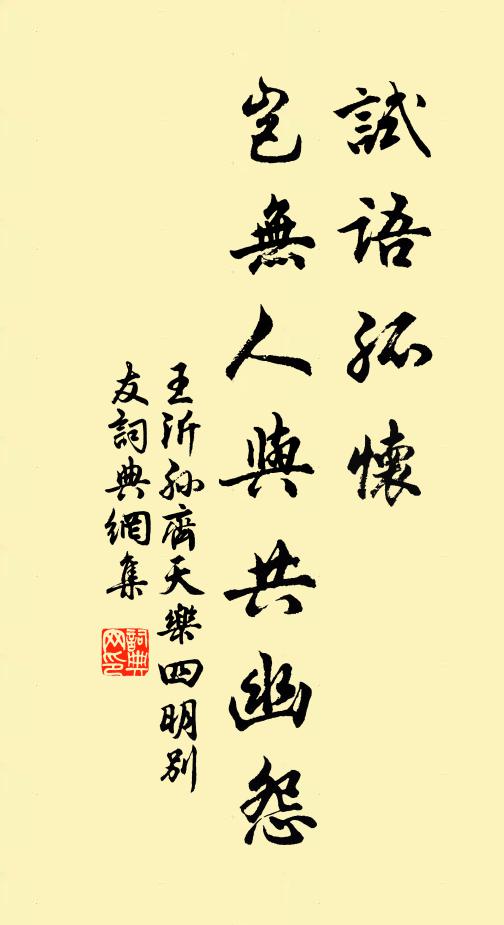 試語孤懷
豈無人與共幽怨
王沂孫齊天樂四明別
友詞典網集
詞典
网印